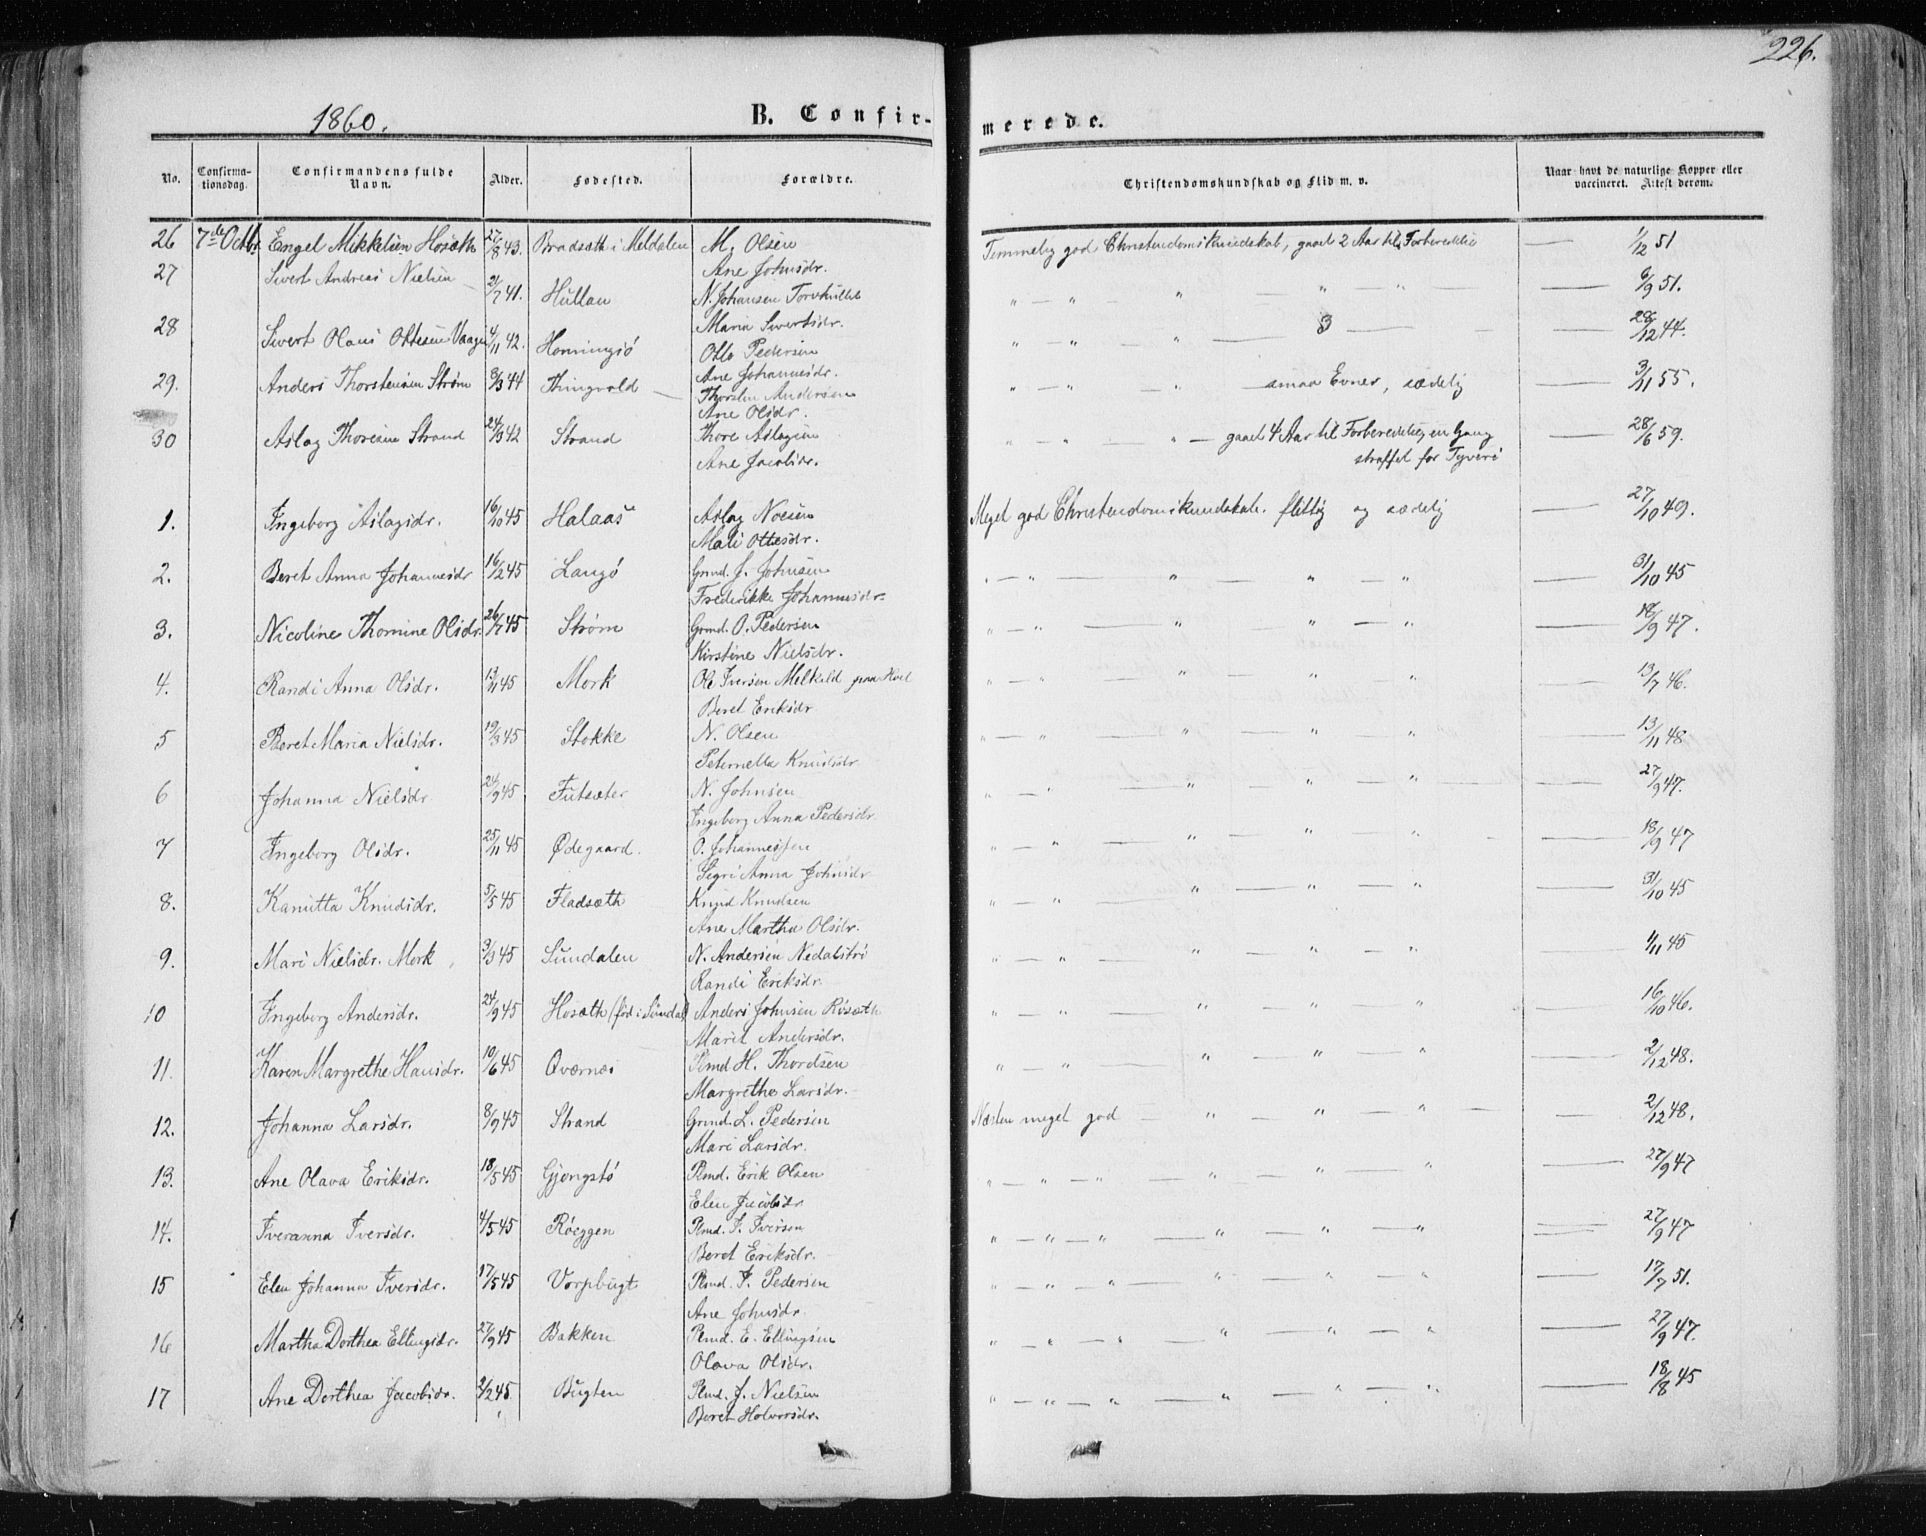 226.
1860.
B. Confir-
merede.
No.
Confirma-
tionsdag.
Confirmandens fulde
Navn.
Alder.
Fødested.
Forældre.
Christendomskundskab og Flid m. v.
Naar havt de naturlige Kopper eller
vaccineret. Attest derom.
26 7de Octbr. Engel Mikkelsen Hosæth 27/8 43. Bradsæth i Meldalen M. Olsen Temmelig god Christendomskundskab, gaaet 2 Aar til Forberedelse — 1/12 51
Ane Johnsdr.
27 Sivert Andreas Nielsen 2/7 41. Hullan N. Johansen " — " " — " — " — 6/9 51.
Maria Sivertsdr.
28 Sivert Olaus Ottesen Vaagen 4/11 42. Honningsö Otto Pedersen " — " " 3 — — 28/12 44.
Ane Johannesdr.
29. Anders Thorstensen Strøm 8/3 44 Thingvold — Thorsten Andersen " — " " — smaa Evner, sædelig — 3/11 55.
Ane Olsdr.
30 Aslag Thoresen Strand 24/3 42 Strand Thore Aslagsen " — " — " — gaaet 4 Aar til Forberedelse, en Gang — 28/6 59.
Ane Jacobsdr. straffet for Tyveri
1. Ingeborg Aslagsdr. 16/10 45 Halaas Aslag Noesen Meget god Christendomskundskab. flittig og sædelig — 27/10 49.
Mali Ottesdr.
2. Beret Anna Johannesdr 16/2 45 Langö Grmd. J. Johnsen " — " — " — " — " — 31/10 45
Frederikke Johannesdr.
3. Nicoline Thomine Olsdr. 26/7 45 Strøm Grmd. O. Pedersen " — " — " — " — " — 18/9 47.
Kirstine Nielsdr.
4. Randi Anna Olsdr. 13/11 45 Mork Ole Iversen Melkild paa Hoel " — " — " — " — " — 13/7 46.
Beret Eriksdr
5 Beret Maria Nielsdr. 19/3 45 Stokke N. Olsen " — " — " — " — " — 13/11 48
Peternella Knudsdr
6 Johanna Nielsdr 24/9 45 Futsæter N. Johnsen " — " — " — " — " — 27/9 47.
Ingeborg Anna Pedersdr.
7 Ingeborg Olsdr. 25/11 45 Ødegaard. O. Johannessen " — " — " — " — " — 18/9 47
Segri Anna Johnsdr
8. Kanutta Knudsdr. 5/5 45 Fladsæth Knud Knudsen " — " — " — " — " — 31/10 45
Ane Martha Olsdr.
9. Mari Nielsdr. Mork 3/3 45 Sundalen N. Andersen Nedalströ " — " — " — " — " — 1/11 45
Randi Eriksdr
10 Ingeborg Andersdr. 24/9 45 Hosæth (fød i Sundal) Anders Johnsen Rösæth " — " — " — " — " — 16/10 46.
Marit Andersdr.
11. Karen Margrethe Hansdr. 10/6 45 Qværnes Plmd H. Thordsen " — " — " — " — " — 2/12 48.
Margrethe Larsdr.
12. Johanna Larsdr. 8/9 45 Strand Grmd. L. Pedersen Næsten meget god — " — " — " — 2/12 48.
Mari Larsdr.
13. Ane Olava Eriksdr. 18/5 45 Gjengstö Plmd. Erik Olsen " — " — " — " — " — " — 27/9 47
Elen Jacobsdr
14. Iveranna Iversdr. 4/5 45 Röeggen Plmd. I. Iversen " — " — " — " — " — " — 27/9 47
Beret Eriksdr.
15 Elen Johanna Iversdr. 17/5 45 Vorpbugt Plmd. I. Pedersen " — " — " — " — " — " — 17/7 51.
Ane Johnsdr.
16 Martha Dorthea Ellingsdr. 27/9 45 Bakken Plmd. E. Ellingsen " — " — " — " — " — " — 27/9 47.
Olava Olsdr.
17 Ane Dorthea Jacobsdr. 2/2 45. Bugten Plmd. J. Nielsen " — " — " — " — " — " — 18/8 45
Beret Halvorsdr.